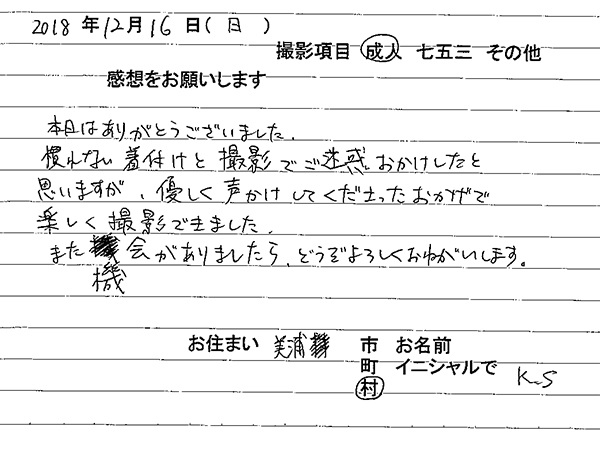 2018 年 12月 16 日( 日 )
撮影項目 成人 七五三 その他
感想をお願いします
本日はありがとうございました.
慣れない着付けと撮影でご迷惑おかけしたと
思いますが、優しく声かけしてくださったおかげで
楽しく撮影できました.
また機会がありましたら、どうぞよろしくおねがいします。
お住まい 美浦 市 お名前
町 イニシャルで K.S
村